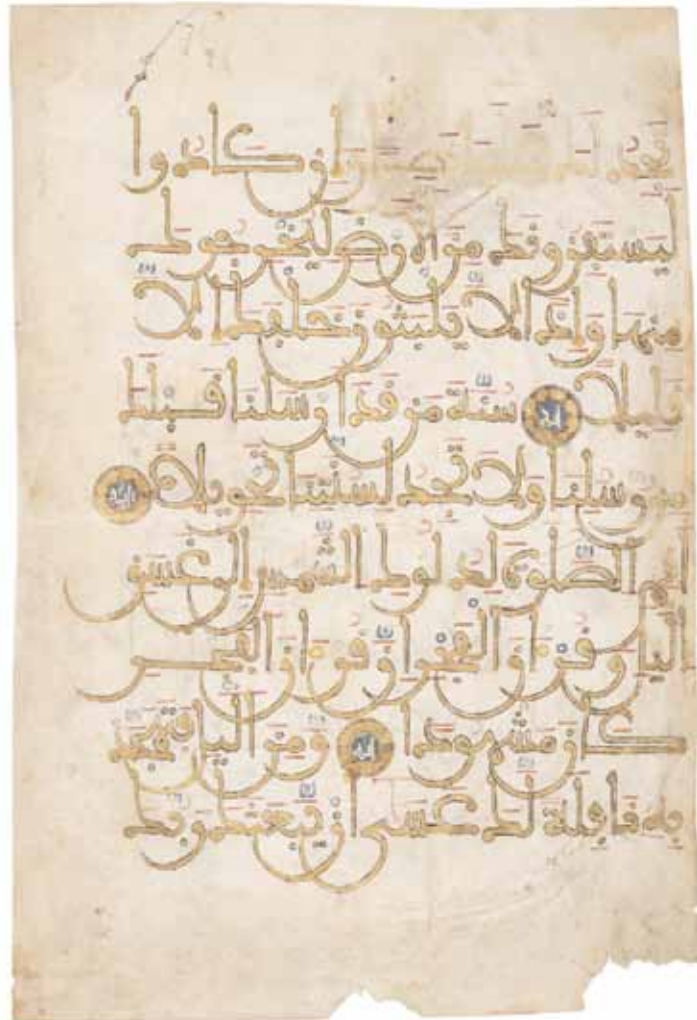 تجد وان كادوا
ليستفزونك من الارض ليخرجوك
منها واذا لا يلبثون خلفك الا
قليلا سنة من قد ارسلنا قبلك
من رسلنا ولا تجد لسنتنا تحويلا
اقم الصلوة لدلوك الشمس الى غسق
اليل وقران الفجر ان قران الفجر
كان مشهودا ومن اليل فتهجد
به نافلة لك عسى ان يبعثك ربك